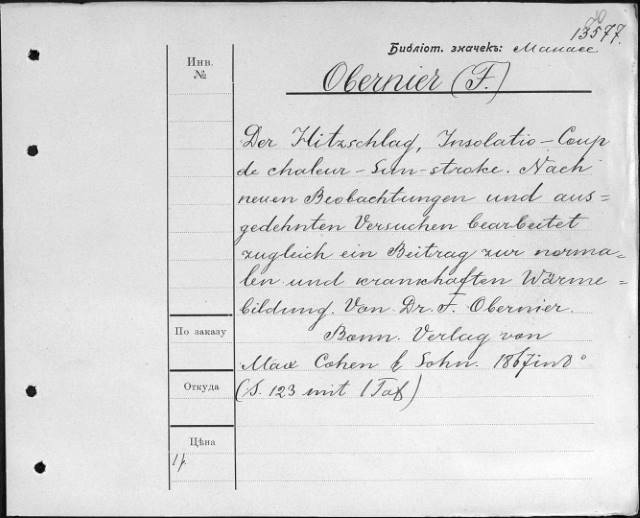 13577.
Библіот. значекъ: Манасс
Инв. №
Obernier (F.)
Der Hitzschlag, Insolatio - Coup
de chaleur - Sun-stroke. Nach
neuen Beobachtungen und aus=
gedehnten Versuchen bearbeitet
zugleich ein Beitrag zur norma=
len und krankhaften Wärme=
bildung. Von Dr. F. Obernier.
Bonn. Verlag von
Max Cohen & Sohn. 1867 in 8°
(S. 123 mit 1 Taf)
По заказу
Откуда
Цѣна
1 р.